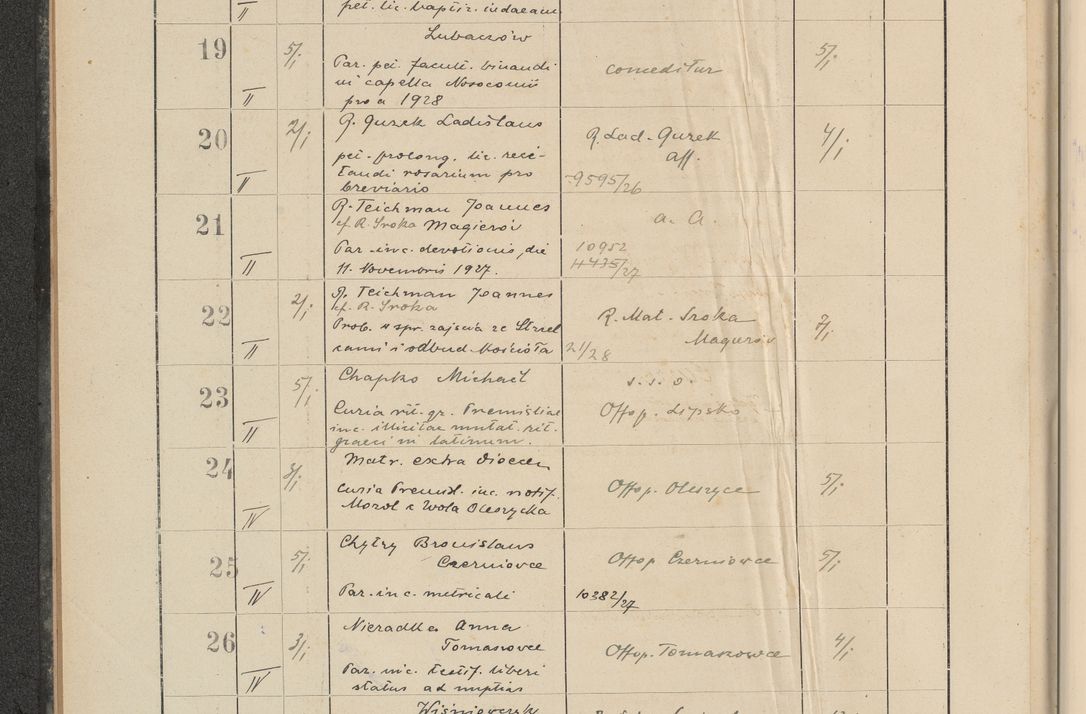 II
pet. lic. baptiz. iudaeam
19
5/I
Lubaczów
Par. pet. facult. binandi
in capella Nosocomii
pro a 1928
II
conceditur
5/I
20
2/I
R. Gurek Ladislaus
pet. prolong. lic. reci-
tandi rosarium pro
breviario
II
R. Lad. Gurek
aff.
9595/26
4/I
21
R. Teichman Joannes
cf. R. Sroka Magierów
Par inc. devotionis, die
11. Novembris 1927.
II
a. a.
10952
11435/27
22
2/I
R. Teichman Joannes
cf. R. Sroka
Prob. w spr. zajścia ze Strzel
cami i odbud Kościoła
II
R. Mat. Sroka
Magierów
21/28
7/I
23
5/I
Chapko Michael
Curia rit. gr. Premisliae
inc. illicitae mutat. rit.
graeci in latinum.
II
s. s. o.
Offop. Lipsko
24
3/I
Matr. extra dioecen
Curia Premisl. inc. notif.
Mazol z Wola Oleszycka
IV
Offop. Oleszyce
5/I
25
5/I
Chytry Bronislaus
Czerniowce
Par. inc. metricali
IV
Offop Czerniowce
10382/27
5/I
26
3/I
Nieradka Anna
Tomasowce
Par. inc. testif. liberi
status ad nuptias
IV
Offop. Tomakowce
4/I
Wiśniowczyk